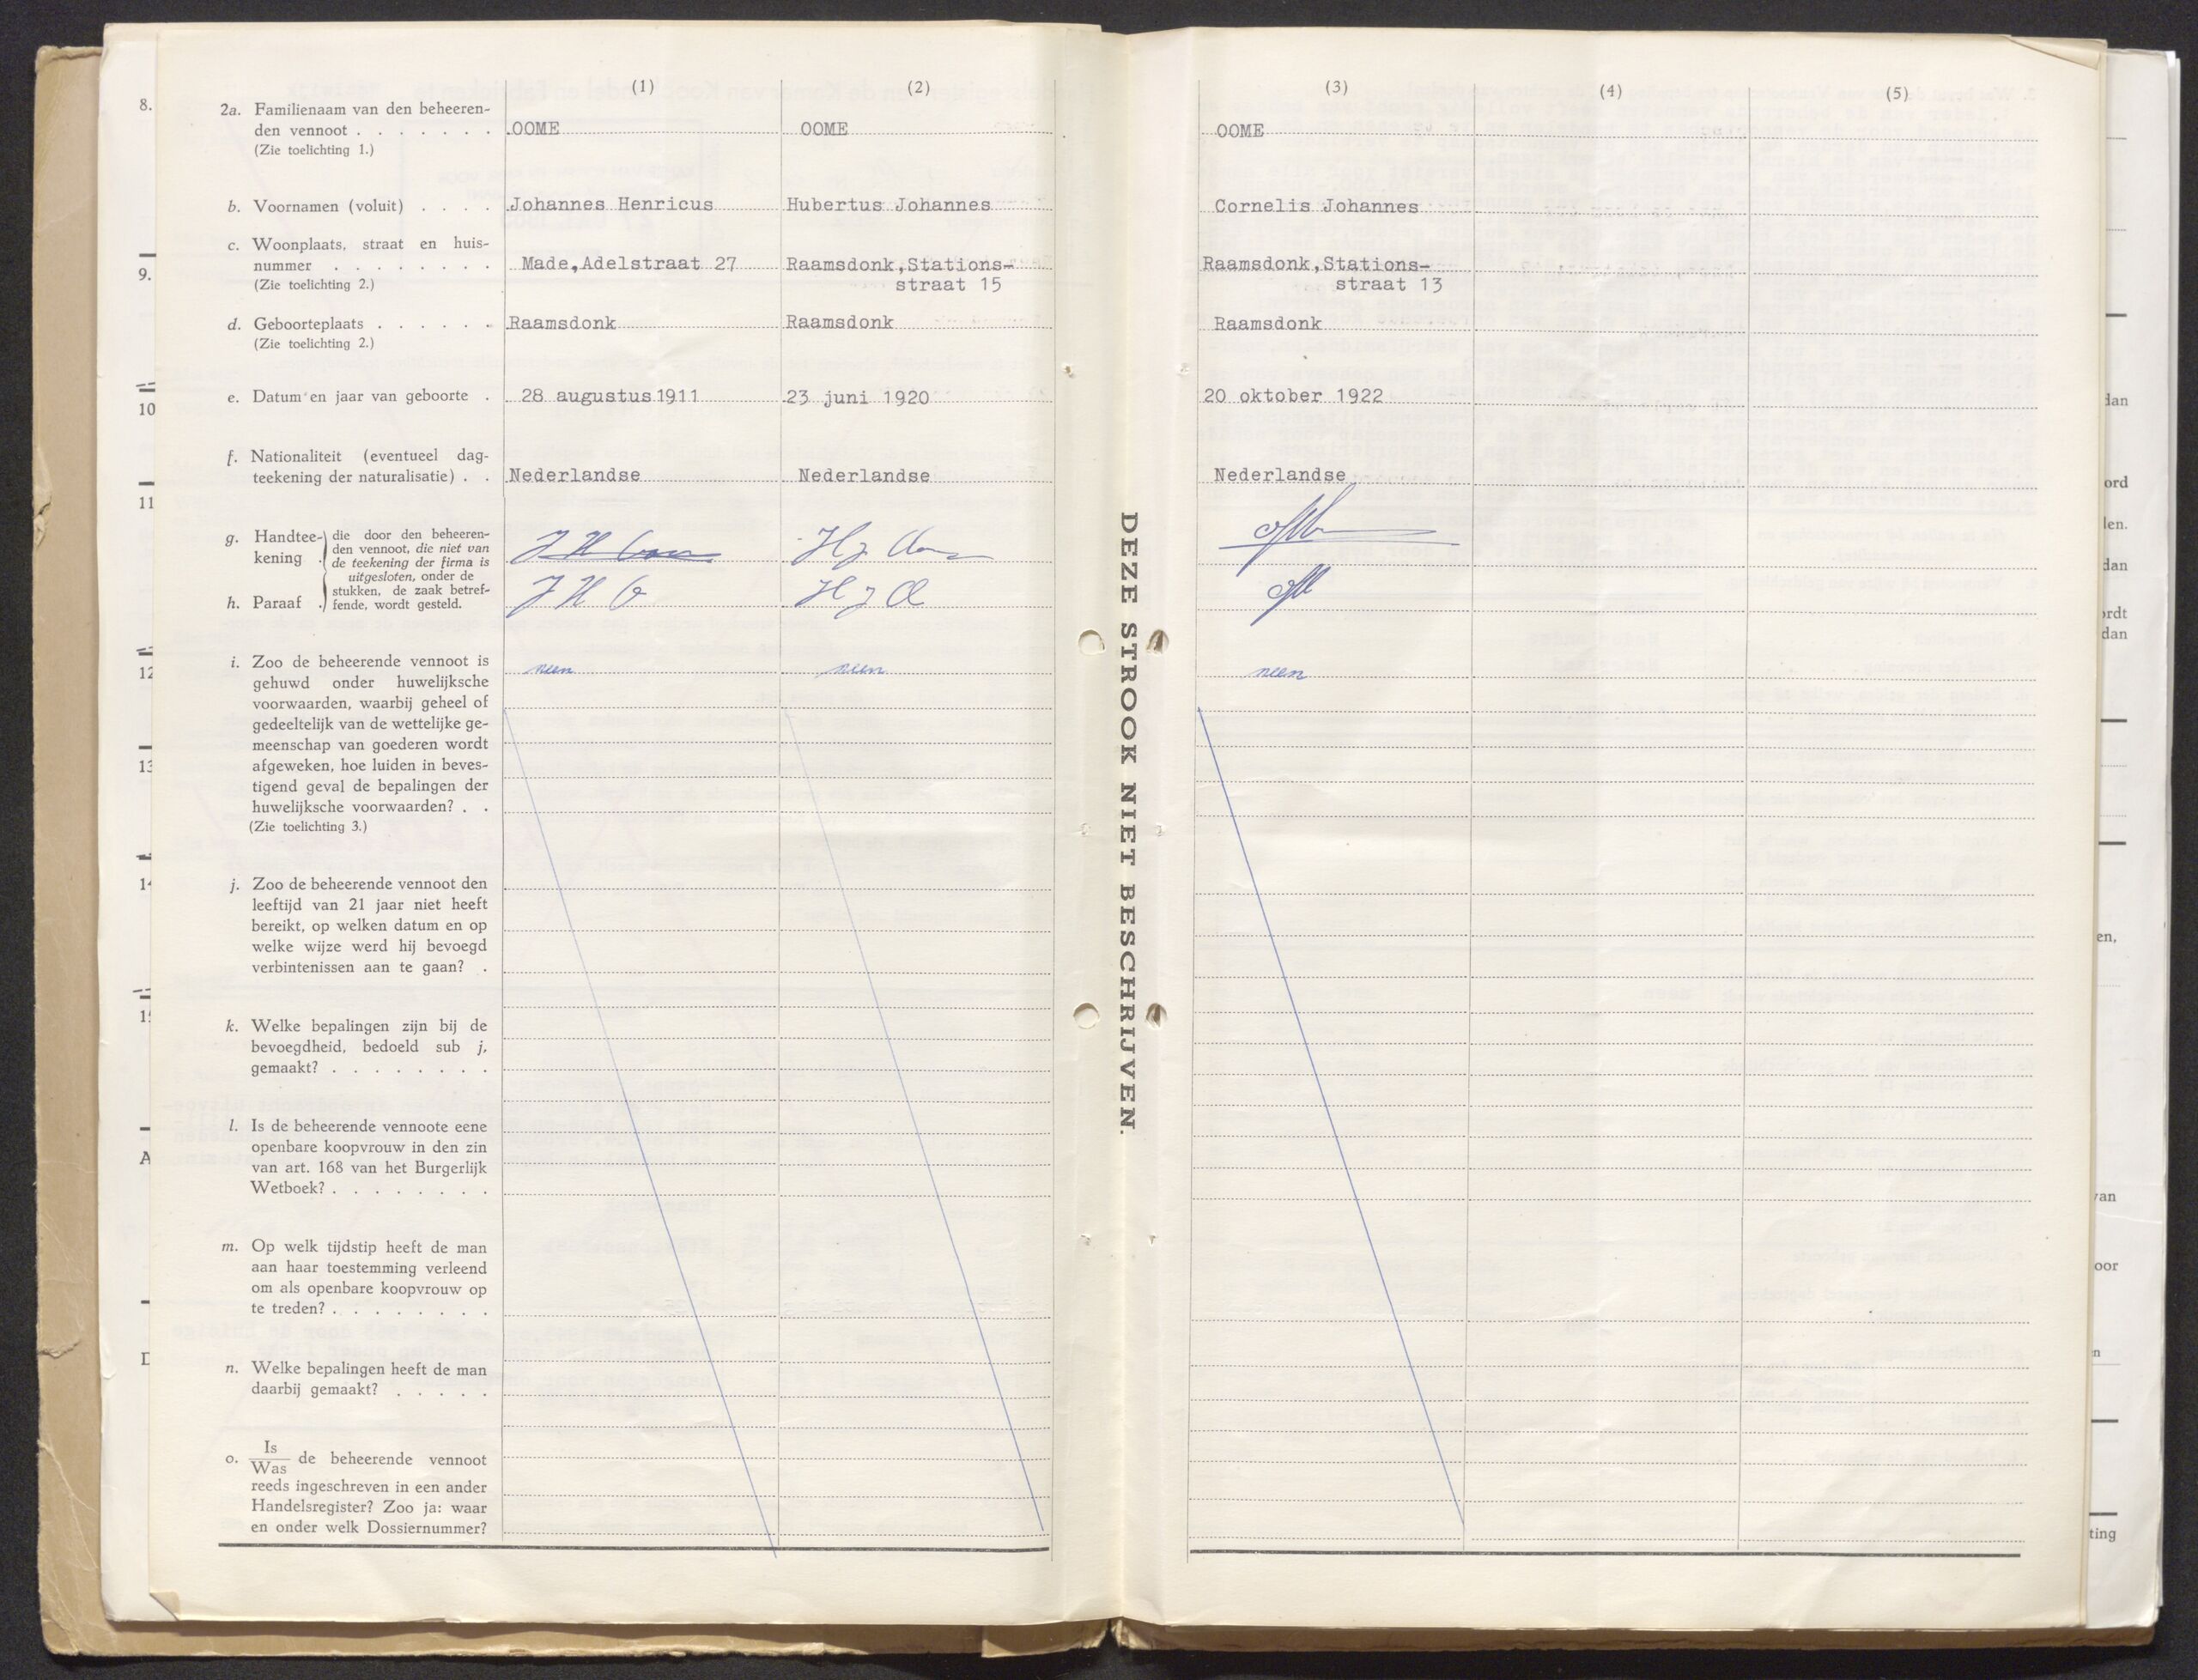 (1) (2)
2a. Familienaam van den beheeren-
den vennoot . . . . . . . OOME OOME
(Zie toelichting 1.)
b. Voornamen (voluit) . . . . Johannes Henricus Hubertus Johannes
c. Woonplaats, straat en huis-
nummer . . . . . . . . Made, Adelstraat 27 Raamsdonk, Stations-
(Zie toelichting 2.) straat 15
d. Geboorteplaats . . . . . . Raamsdonk Raamsdonk
(Zie toelichting 2.)
e. Datum en jaar van geboorte . 28 augustus 1911 23 juni 1920
f. Nationaliteit (eventueel dag-
teekening der naturalisatie) . . Nederlandse Nederlandse
g. Handtee-
kening .
h. Paraaf .
die door den beheeren-
den vennoot, die niet van
de teekening der firma is
uitgesloten, onder de
stukken, de zaak betref-
fende, wordt gesteld.
J H
H J
J H O H J O
i. Zoo de beheerende vennoot is
gehuwd onder huwelijksche neen neen
voorwaarden, waarbij geheel of
gedeeltelijk van de wettelijke ge-
meenschap van goederen wordt
afgeweken, hoe luiden in beves-
tigend geval de bepalingen der
huwelijksche voorwaarden? . .
(Zie toelichting 3.)
j. Zoo de beheerende vennoot den
leeftijd van 21 jaar niet heeft
bereikt, op welken datum en op
welke wijze werd hij bevoegd
verbintenissen aan te gaan? .
k. Welke bepalingen zijn bij de
bevoegdheid, bedoeld sub j,
gemaakt? . . . . . . . .
l. Is de beheerende vennoote eene
openbare koopvrouw in den zin
van art. 168 van het Burgerlijk
Wetboek? . . . . . . . .
m. Op welk tijdstip heeft de man
aan haar toestemming verleend
om als openbare koopvrouw op
te treden? . . . . . . . .
n. Welke bepalingen heeft de man
daarbij gemaakt? . . . . .
o. Is
Was de beheerende vennoot
reeds ingeschreven in een ander
Handelsregister? Zoo ja: waar
en onder welk Dossiernummer?
DEZE STROOK NIET BESCHRIJVEN.
(3) (4) (5)
OOME
Cornelis Johannes
Raamsdonk, Stations-
straat 13
Raamsdonk
20 oktober 1922
Nederlandse
neen
8.
9.
10
11
12
13
14
15
A
D
dan
ord
len.
dan
ordt
dan
en,
van
oor
n
ting